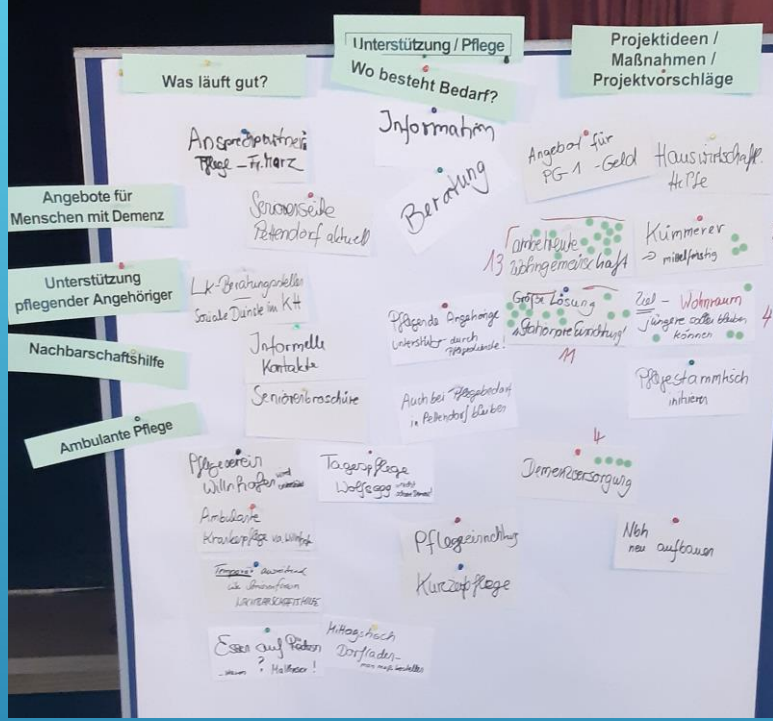 Unterstützung / Pflege
Was läuft gut?
Wo besteht Bedarf?
Projektideen /
Maßnahmen /
Projektvorschläge
Angebote für
Menschen mit Demenz
Unterstützung
pflegender Angehöriger
Nachbarschaftshilfe
Ambulante Pflege
Ansprechpartner
Pflege - Fr. Marz
Seniorenseite
Pettendorf aktuell
LK-Beratungsstellen
Soziale Dienste im KH
Informelle
Kontakte
Seniorenbroschüre
Pflegeverein
Willnhofen
Ambulante
Krankenpflege
NACHBARSCHAFTSHILFE
Essen auf Rädern
? Malteser!
Information
Beratung
Pflegende Angehörige
unterstützt durch
Pflegedienste!
Auch bei Pflegebedarf
in Pettendorf bleiben
Tagespflege
Wolfsegg
Pflegeeinrichtung
Kurzzeitpflege
Mittagstisch
Dorfladen-
man muß bestellen
Angebot für
PG-1 - Geld
Hauswirtschaft.
Hilfe
13 ambetreute
Wohngemeinschaft
Kümmerer
→ mittelfristig
Große Lösung
Stationäre Einrichtung!
11
Ziel - Wohnraum
jüngere sollen bleiben
können
4
Pflegestammtisch
initiieren
4
Demenzversorgung
Nbh
neu aufbauen